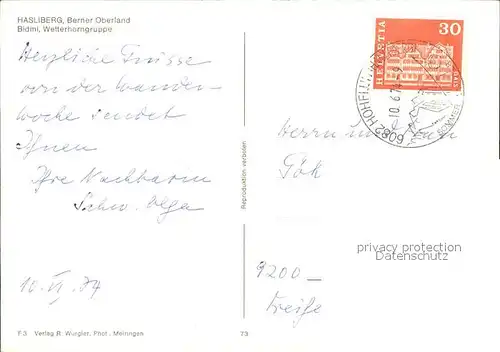 HASLIBERG, Berner Oberland
Bidmi, Wetterhorngruppe
Herzliche Grüsse
von der Wander-
woche sendet
Ihnen
Ihre Nachbarin
Schw. Olga
10. VI. 74
F 3 Verlag R. Würgler, Phot., Meiringen
73
Reproduktion verboten
HELVETIA
30
6082 HOHFLUH
10.6.74
SOMMER
Herrn und Frau
9200
privacy protection
Datenschutz